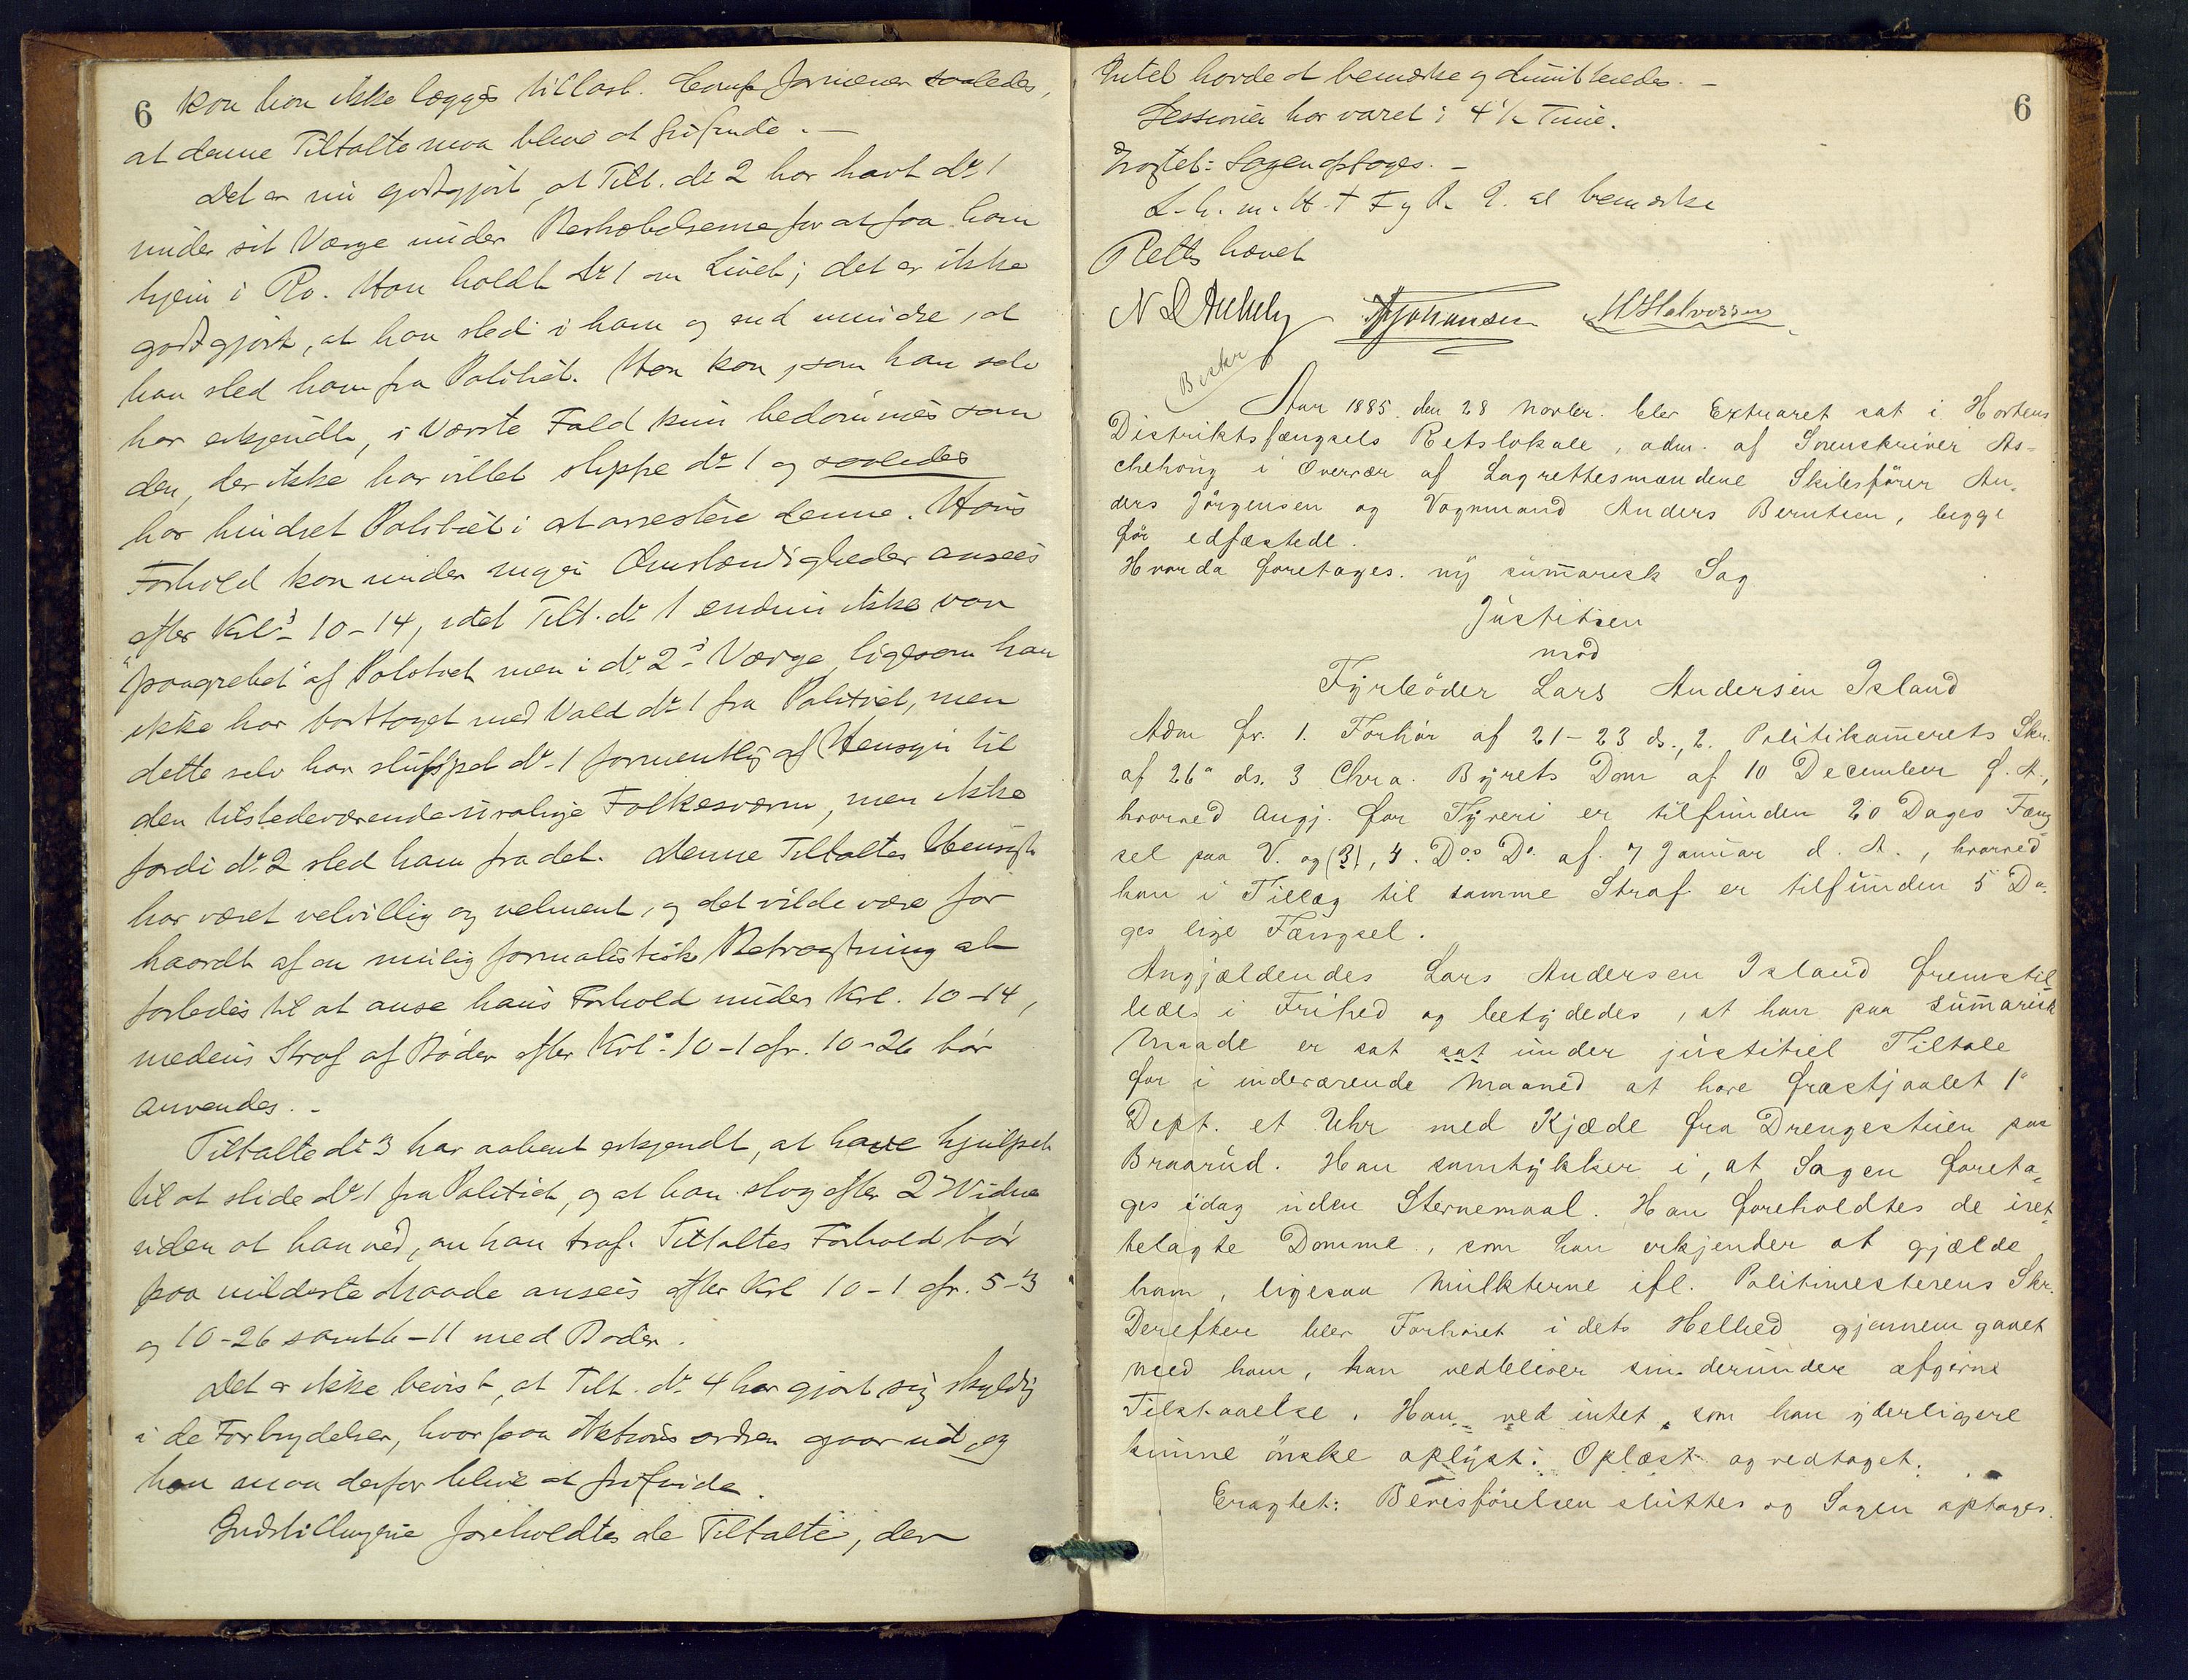 6
kan han ikke lægges tillast. Comp formener saaledes,
at denne Tiltalte maa blive at frifinde. —
Det er nu godtgjort, at Tilt. № 2 har havt № 1
under sit Værge under Bestræbelserne for at faa ham
hjem i Ro. Han holdt № 1 om Livet; det er ikke
godtgjort, at han sled i ham og end mindre, at
han sled ham fra Politiet. Han kan, som han selv
har erkjendt, i Værste Fald kun bedømmes som
den, der ikke har villet slippe № 1 og saaledes
har hindret Politiet i at arrestere denne. Hans
Forhold kan under ingen Omstændigheder ansees
efter Krls 10-14, idet Tilt. № 1 endnu ikke var
"paagrebet" af Politiet men i № 2s Værge, ligesom han
ikke har borttaget med Vold № 1 fra Politiet, men
dette selv har sluppet № 1 formentlig af Hensyn til
den tilstedeværende urolige Folkesværm, men ikke
fordi № 2 sled ham fra det. Denne Tiltaltes Hensigt
har været velvillig og velment, og det vilde være for
haardt af en mulig formalistisk Betragtning at
forledes til at anse hans Forhold under Krl. 10-14,
medens Straf af Bøder efter Krls 10-1 cfr. 10-26 bør
anvendes. -
Tiltalte № 3 har aabent erkjendt, at have hjulpet
til at slide № 1 fra Politiet, og at han slog efter 2 Vidne
uden at han ved, om han traf. Tiltaltes Forhold bør
paa mildeste Maade ansees efter Krl 10-1 cfr. 5-3
og 10-26 samt 6-11 med Bøder.
Det er ikke bevist, at Tilt. № 4 har gjort sig skyldig
i de Forbrydelser, hvorpaa Aktionsordren gaar ud, og
han maa derfor blive at frifinde.
Indstillingerne foreholdtes de Tiltalte, der
6
Intet havde at bemærke og dimitteredes. —
Sessionen har varet i 4½ Time.
Eragtet: Sagen optages. —
at bemærke
Retten hævet
Johansen H Halvorsen
Beskr
Aar 1885 den 28 Novbr. blev Extraret sat i Hortens
Distriktsfængsels Retslokale, adm. af Sorenskriver As-
chehoug i Overvær af Lagrettesmændene Skibsfører An-
ders Jørgensen og Vognmand Anders Berntsen, begge
før edfæstede.
Hvorda foretages ny summarisk Sag
Justitsen
mod
Fyrbøder Lars Andersen Island
Adm fr. 1. Forhør af 21-23 ds., 2. Politikammerets Skr.
af 26de ds. 3 Chra. Byrets Dom af 10 December f. A.,
hvorved Angj. for Tyveri er tilfunden 20 Dages Fæng
sel paa V. og B, 4. Dos Do af 7 Januar d. A., hvorved
han i Tillæg til samme Straf er tilfunden 5 Da-
ges lige Fængsel.
Angjældendes Lars Andersen Island fremstil-
ledes i Frihed og betydedes, at han paa summarisk
Maade er sat sat under justitiel Tiltale
for i indeværende Maaned at have frastjaalet 1ste
Dept. et Uhr med Kjæde fra Drengestuen paa
Braarud. Han samtykker i, at Sagen foreta-
ges idag uden Stevnemaal. Han foreholdtes de iret-
telagte Domme, som han erkjender at gjælde
ham, ligesaa Mulkterne ifl. Politimesterens Skr.
Derefter blev Forhøret i dets Helhed gjennemgaaet
med ham, han vedbliver sin derunder afgivne
Tilstaaelse. Han ved intet, som han yderligere
kunne ønske oplyst. Oplæst og vedtaget.
Eragtet: Bevisførelsen sluttes og Sagen optages.